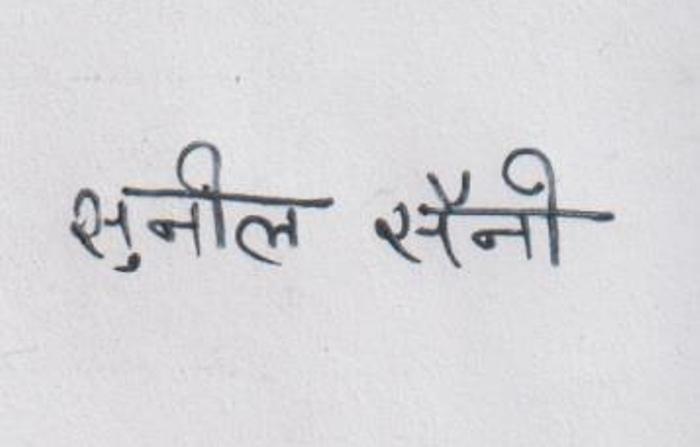 सुनील सैनी